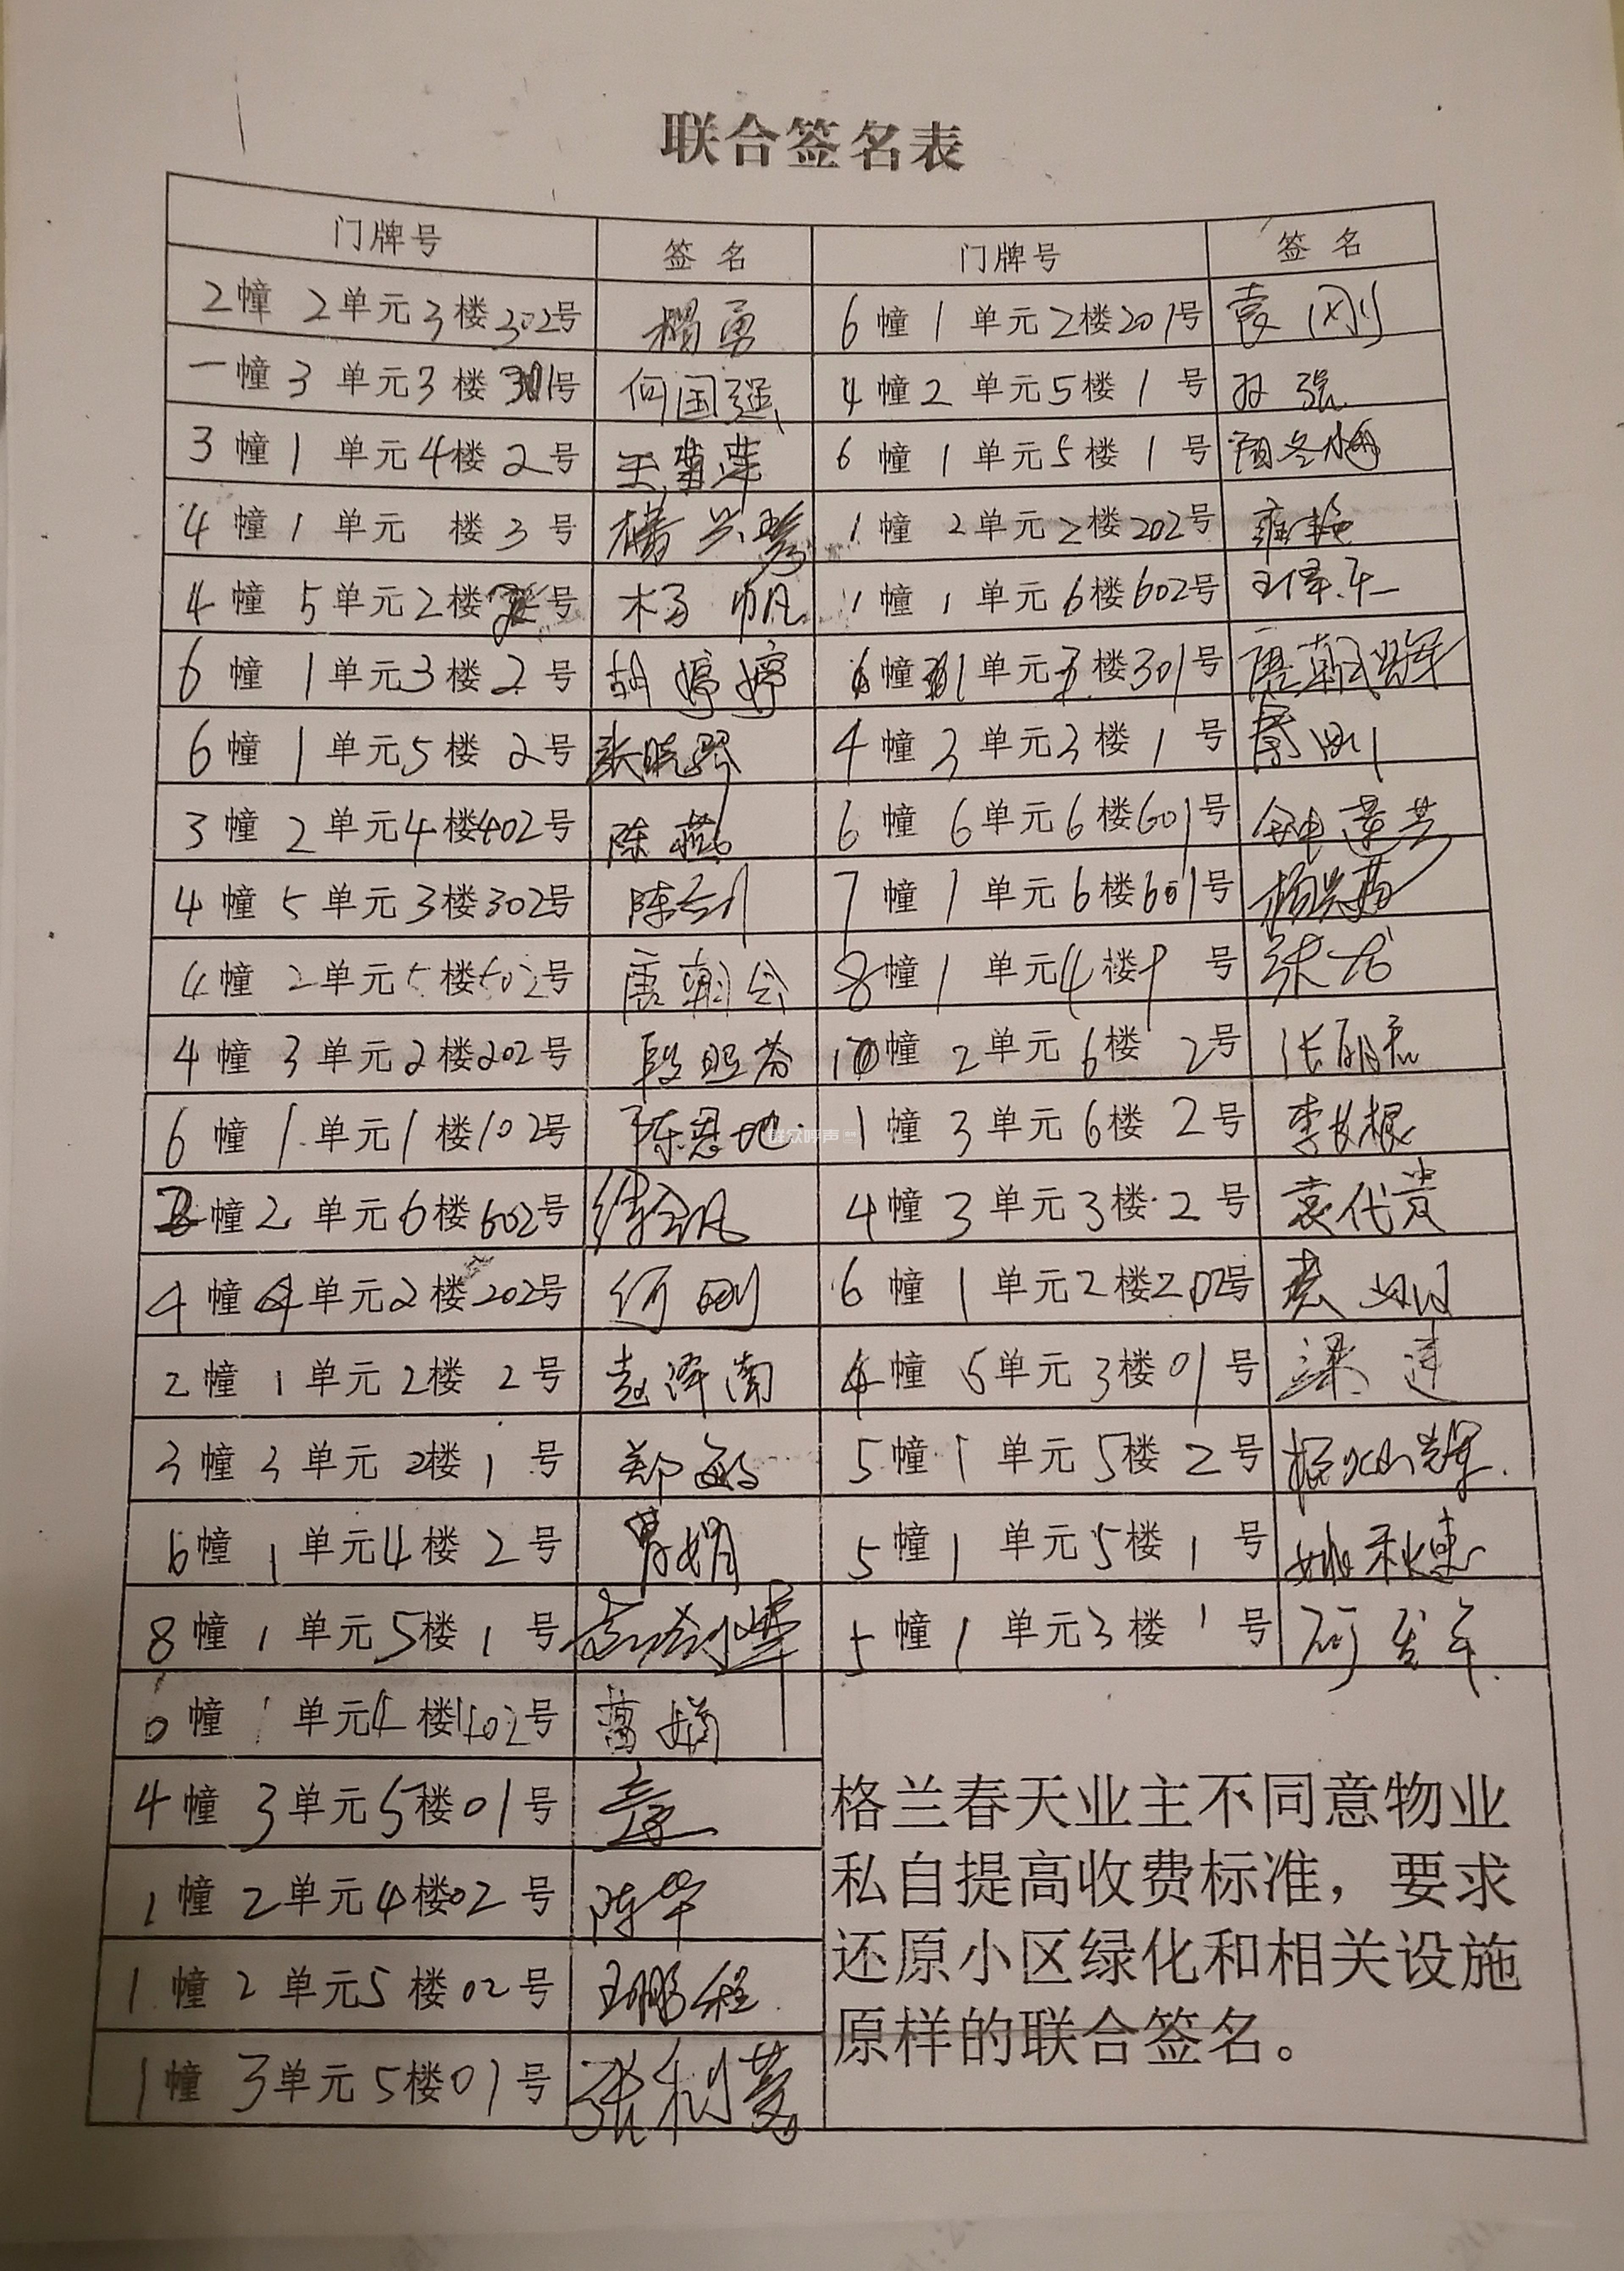 联合签名表
门牌号 签名 门牌号 签名
2幢 2单元3楼302号 6幢1单元2楼201号 袁刚
一幢3单元3楼301号 何国强 4幢2单元5楼1号 孙强
3幢1单元4楼2号 王菊莲 6幢1单元5楼1号
4幢1单元 楼3号 杨兴琴 1幢2单元2楼202号 雍艳
4幢5单元2楼 号 杨帆 1幢1单元6楼602号
6幢1单元3楼2号 胡婷婷 6幢 1单元 楼301号 唐朝
6幢1单元5楼2号 张晓琴 4幢3单元3楼1号 刚
3幢2单元4楼402号 陈燕 6幢6单元6楼601号 钟莲芝
4幢5单元3楼302号 陈剑 7幢1单元6楼601号
4幢2单元5楼502号 唐朝会 8幢1单元4楼 号 张龙
4幢3单元2楼202号 段照芬 10幢2单元6楼2号 张
6幢1单元1楼102号 陈恩地 1幢3单元6楼2号 李长根
幢2单元6楼602号 4幢3单元3楼2号 袁代贵
4幢4单元2楼202号 何刚 6幢1单元2楼202号 袁
2幢1单元2楼2号 赵泽南 4幢5单元3楼01号 梁莲
3幢3单元2楼1号 郑敏 5幢1单元5楼2号
6幢1单元4楼2号 胥娟 5幢1单元5楼1号 姚秋惠
8幢1单元5楼1号 5幢1单元3楼1号
幢1单元4楼402号
4幢3单元5楼01号
1幢2单元4楼02号 陈华
1幢2单元5楼02号 王鹏程
1幢3单元5楼01号 张利蓉
格兰春天业主不同意物业
私自提高收费标准，要求
还原小区绿化和相关设施
原样的联合签名。
群众呼声